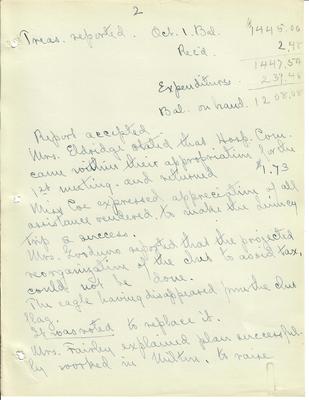 2
Treas. reported. Oct. 1. Bal. $1445.06
Rec'd 2.48
1447.54
Expenditures 239.46
Bal. on hand. 1208.08
Report accepted
Mrs. Eldridge stated that Hosp. Com.
came within their appropriation for the
1st meeting and returned $1.73
Miss Coe expressed appreciation of all
assistance rendered to make the Quincy
trip a success.
Mrs. reported that the projected
reorganization of the club to avoid tax,
could not be done.
The eagle having disappeared from the club
flag.
It was voted to replace it.
Mrs. Fairley explained plan successful-
ly worked in Milton, to raise